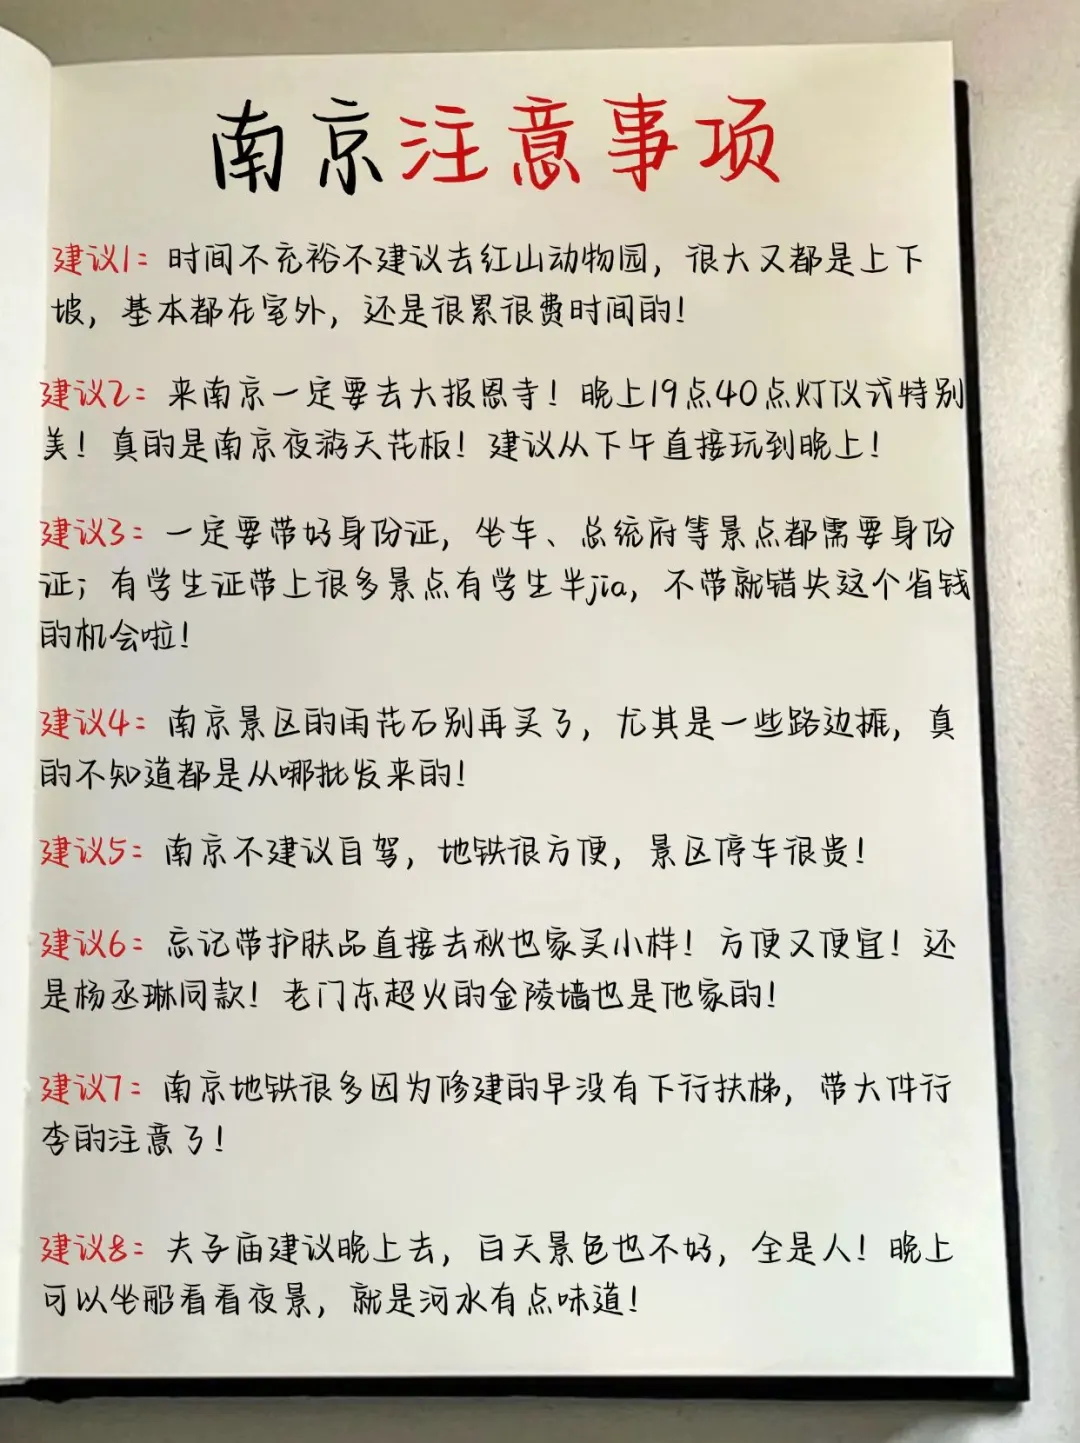 南京注意事项
建议1：时间不充裕不建议去红山动物园，很大又都是上下
坡，基本都在室外，还是很累很费时间的！
建议2：来南京一定要去大报恩寺！晚上19点40点灯仪式特别
美！真的是南京夜游天花板！建议从下午直接玩到晚上！
建议3：一定要带好身份证，坐车、总统府等景点都需要身份
证；有学生证带上很多景点有学生半jia，不带就错失这个省钱
的机会啦！
建议4：南京景区的雨花石别再买了，尤其是一些路边摊，真
的不知道都是从哪批发来的！
建议5：南京不建议自驾，地铁很方便，景区停车很贵！
建议6：忘记带护肤品直接去秋也家买小样！方便又便宜！还
是杨丞琳同款！老门东超火的金陵墙也是他家的！
建议7：南京地铁很多因为修建的早没有下行扶梯，带大件行
李的注意了！
建议8：夫子庙建议晚上去，白天景色也不好，全是人！晚上
可以坐船看看夜景，就是河水有点味道！